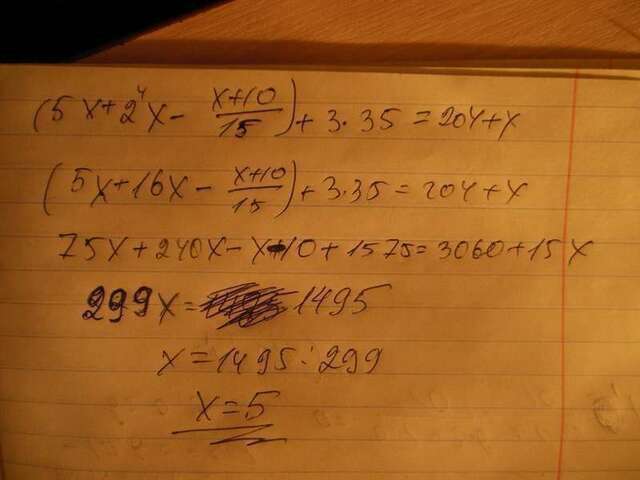 (5x+2⁴x - (x+10)/15) + 3·35 = 204+x
(5x+16x - (x+10)/15) + 3·35 = 204+x
75x+240x-x-10+1575=3060+15x
299x= 1495
x=1495:299
x=5